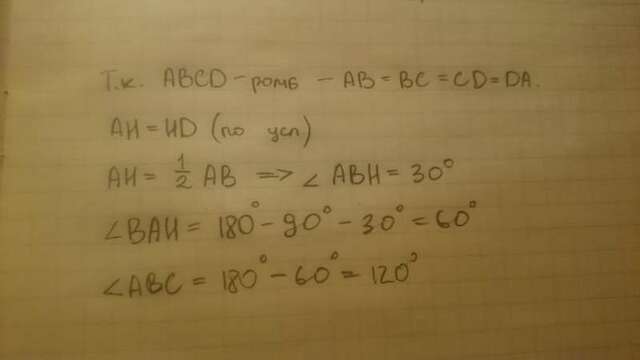 Т.к. ABCD – ромб – AB = BC = CD = DA.
AH = HD (по усл)
AH = 1/2 AB => ∠ ABH = 30°
∠BAH = 180° - 90° - 30° = 60°
∠ABC = 180° - 60° = 120°